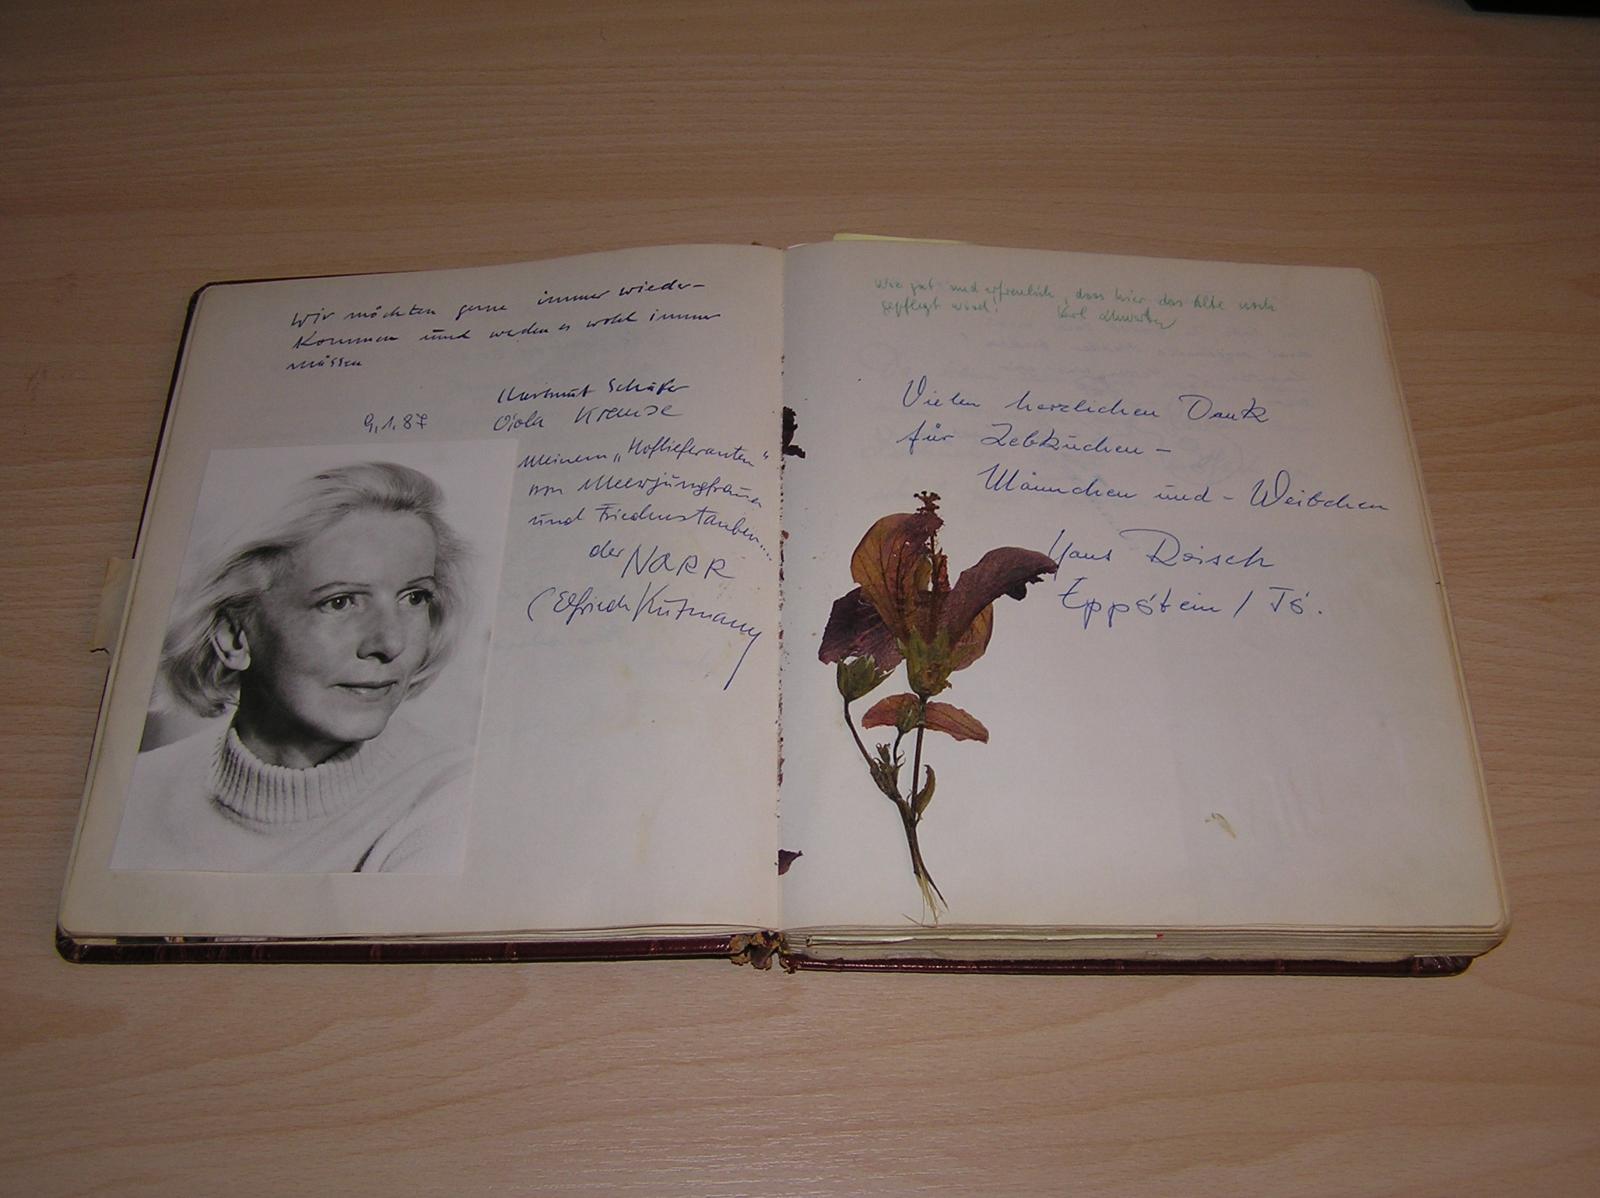 Wir möchten gerne immer wieder-
kommen und werden es wohl immer
müssen
Hartmut Schäfer
Viola Krause
9.1.87
Meinem „Hoflieferanten“
von Meerjungfrauen
und Friedenstauben....
der NARR
(Elfriede Kutzmany
Wie gut und erfreulich, dass hier das Alte noch
gepflegt wird!
Vielen herzlichen Dank
für Lebkuchen-
Männchen und - Weibchen
Hans
Eppstein / Ts.